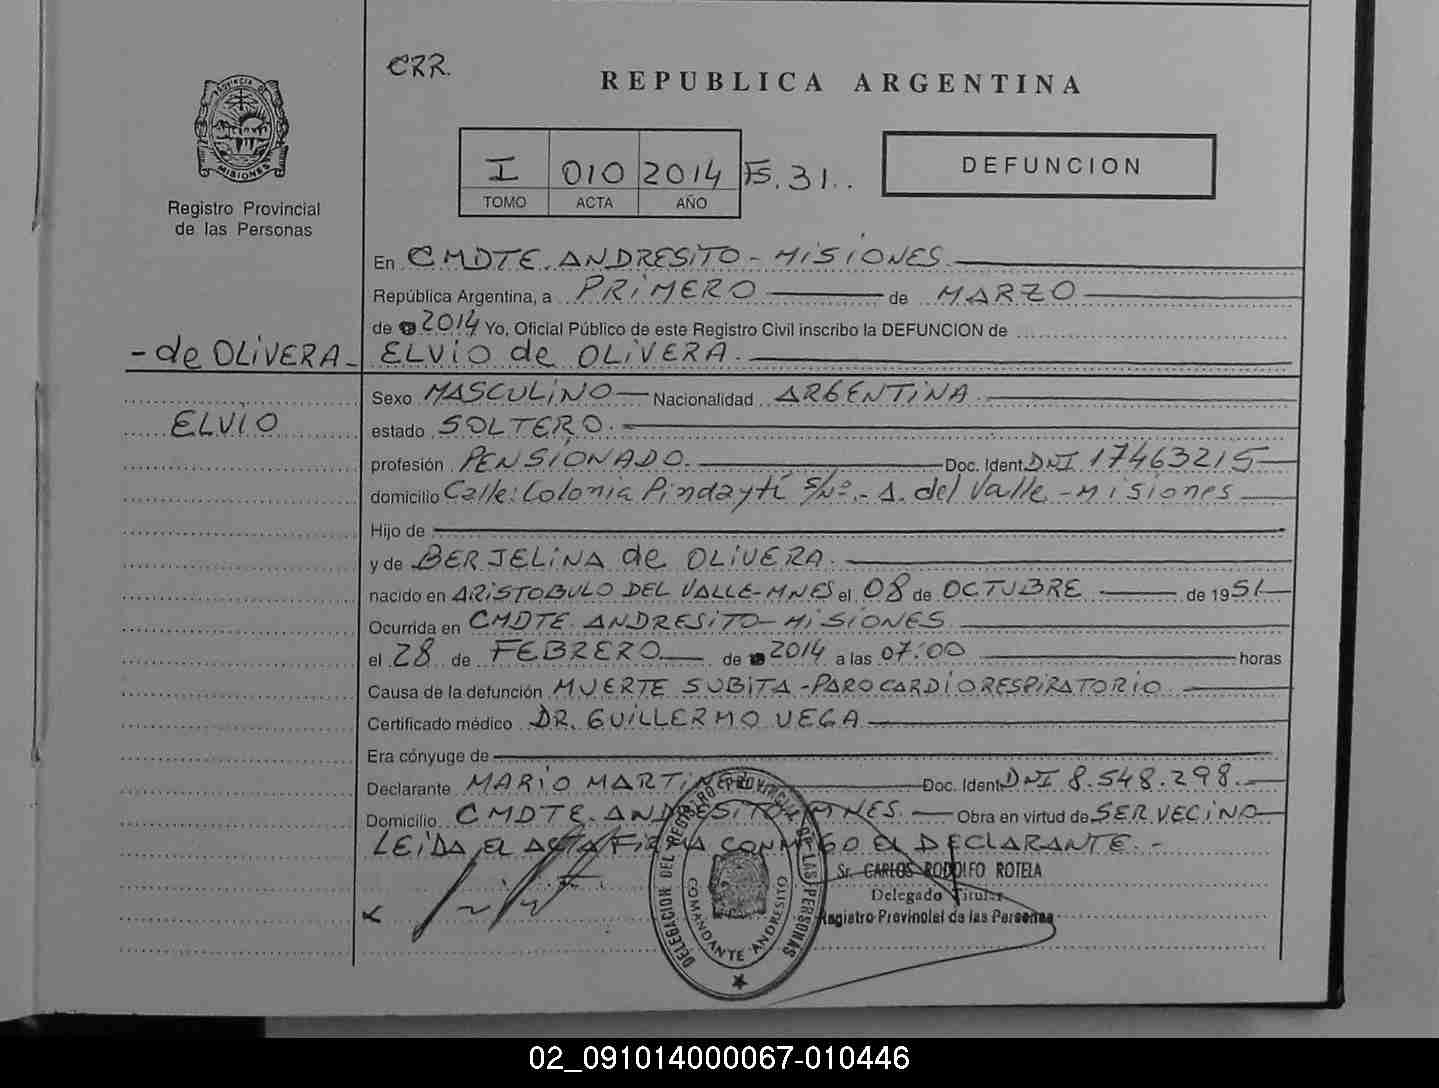 CRR.
REPUBLICA ARGENTINA
PROVINCIA DE
MISIONES
Registro Provincial
de las Personas
I 010 2014 Fs. 31..
TOMO ACTA AÑO
DEFUNCION
En CMDTE. ANDRESITO - MISIONES
República Argentina, a PRIMERO de MARZO
de 2014 Yo, Oficial Público de este Registro Civil inscribo la DEFUNCION de
- de OLIVERA - ELVIO de OLIVERA.
Sexo MASCULINO Nacionalidad ARGENTINA
ELVIO estado SOLTERO.
profesión PENSIONADO. Doc. Ident. DNI 17463215
domicilio Calle: Colonia Pindaytí S/Nº.- A. del Valle - Misiones
Hijo de
y de BERJELINA de OLIVERA.
nacido en ARISTOBULO DEL VALLE-MNES el 08 de OCTUBRE de 1951
Ocurrida en CMDTE. ANDRESITO - MISIONES
el 28 de FEBRERO de 2014 a las 07:00 horas
Causa de la defunción MUERTE SUBITA - PARO CARDIORESPIRATORIO
Certificado médico DR. GUILLERMO VEGA
Era cónyuge de
Declarante MARIO MARTINEZ Doc. Ident. DNI 8.548.298.
Domicilio CMDTE. ANDRESITO MNES. Obra en virtud de SER VECINO
LEIDA EL ACTA FIRMA CONMIGO EL DECLARANTE. -
Sr. CARLOS RODOLFO ROTELA
Delegado Titular
Registro Provincial de las Personas
DELEGACION DEL REGISTRO PROVINCIAL DE LAS PERSONAS
COMANDANTE ANDRESITO
02_091014000067-010446